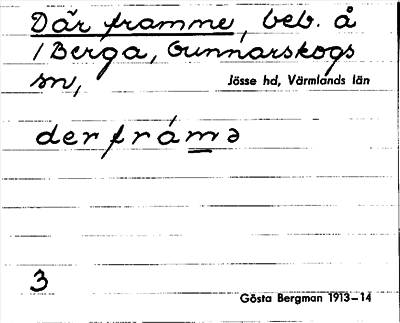 Där framme, beb. å
1 Berga, Gunnarskogs
sn,
Jösse hd, Värmlands län
derfrámə
3
Gösta Bergman 1913–14